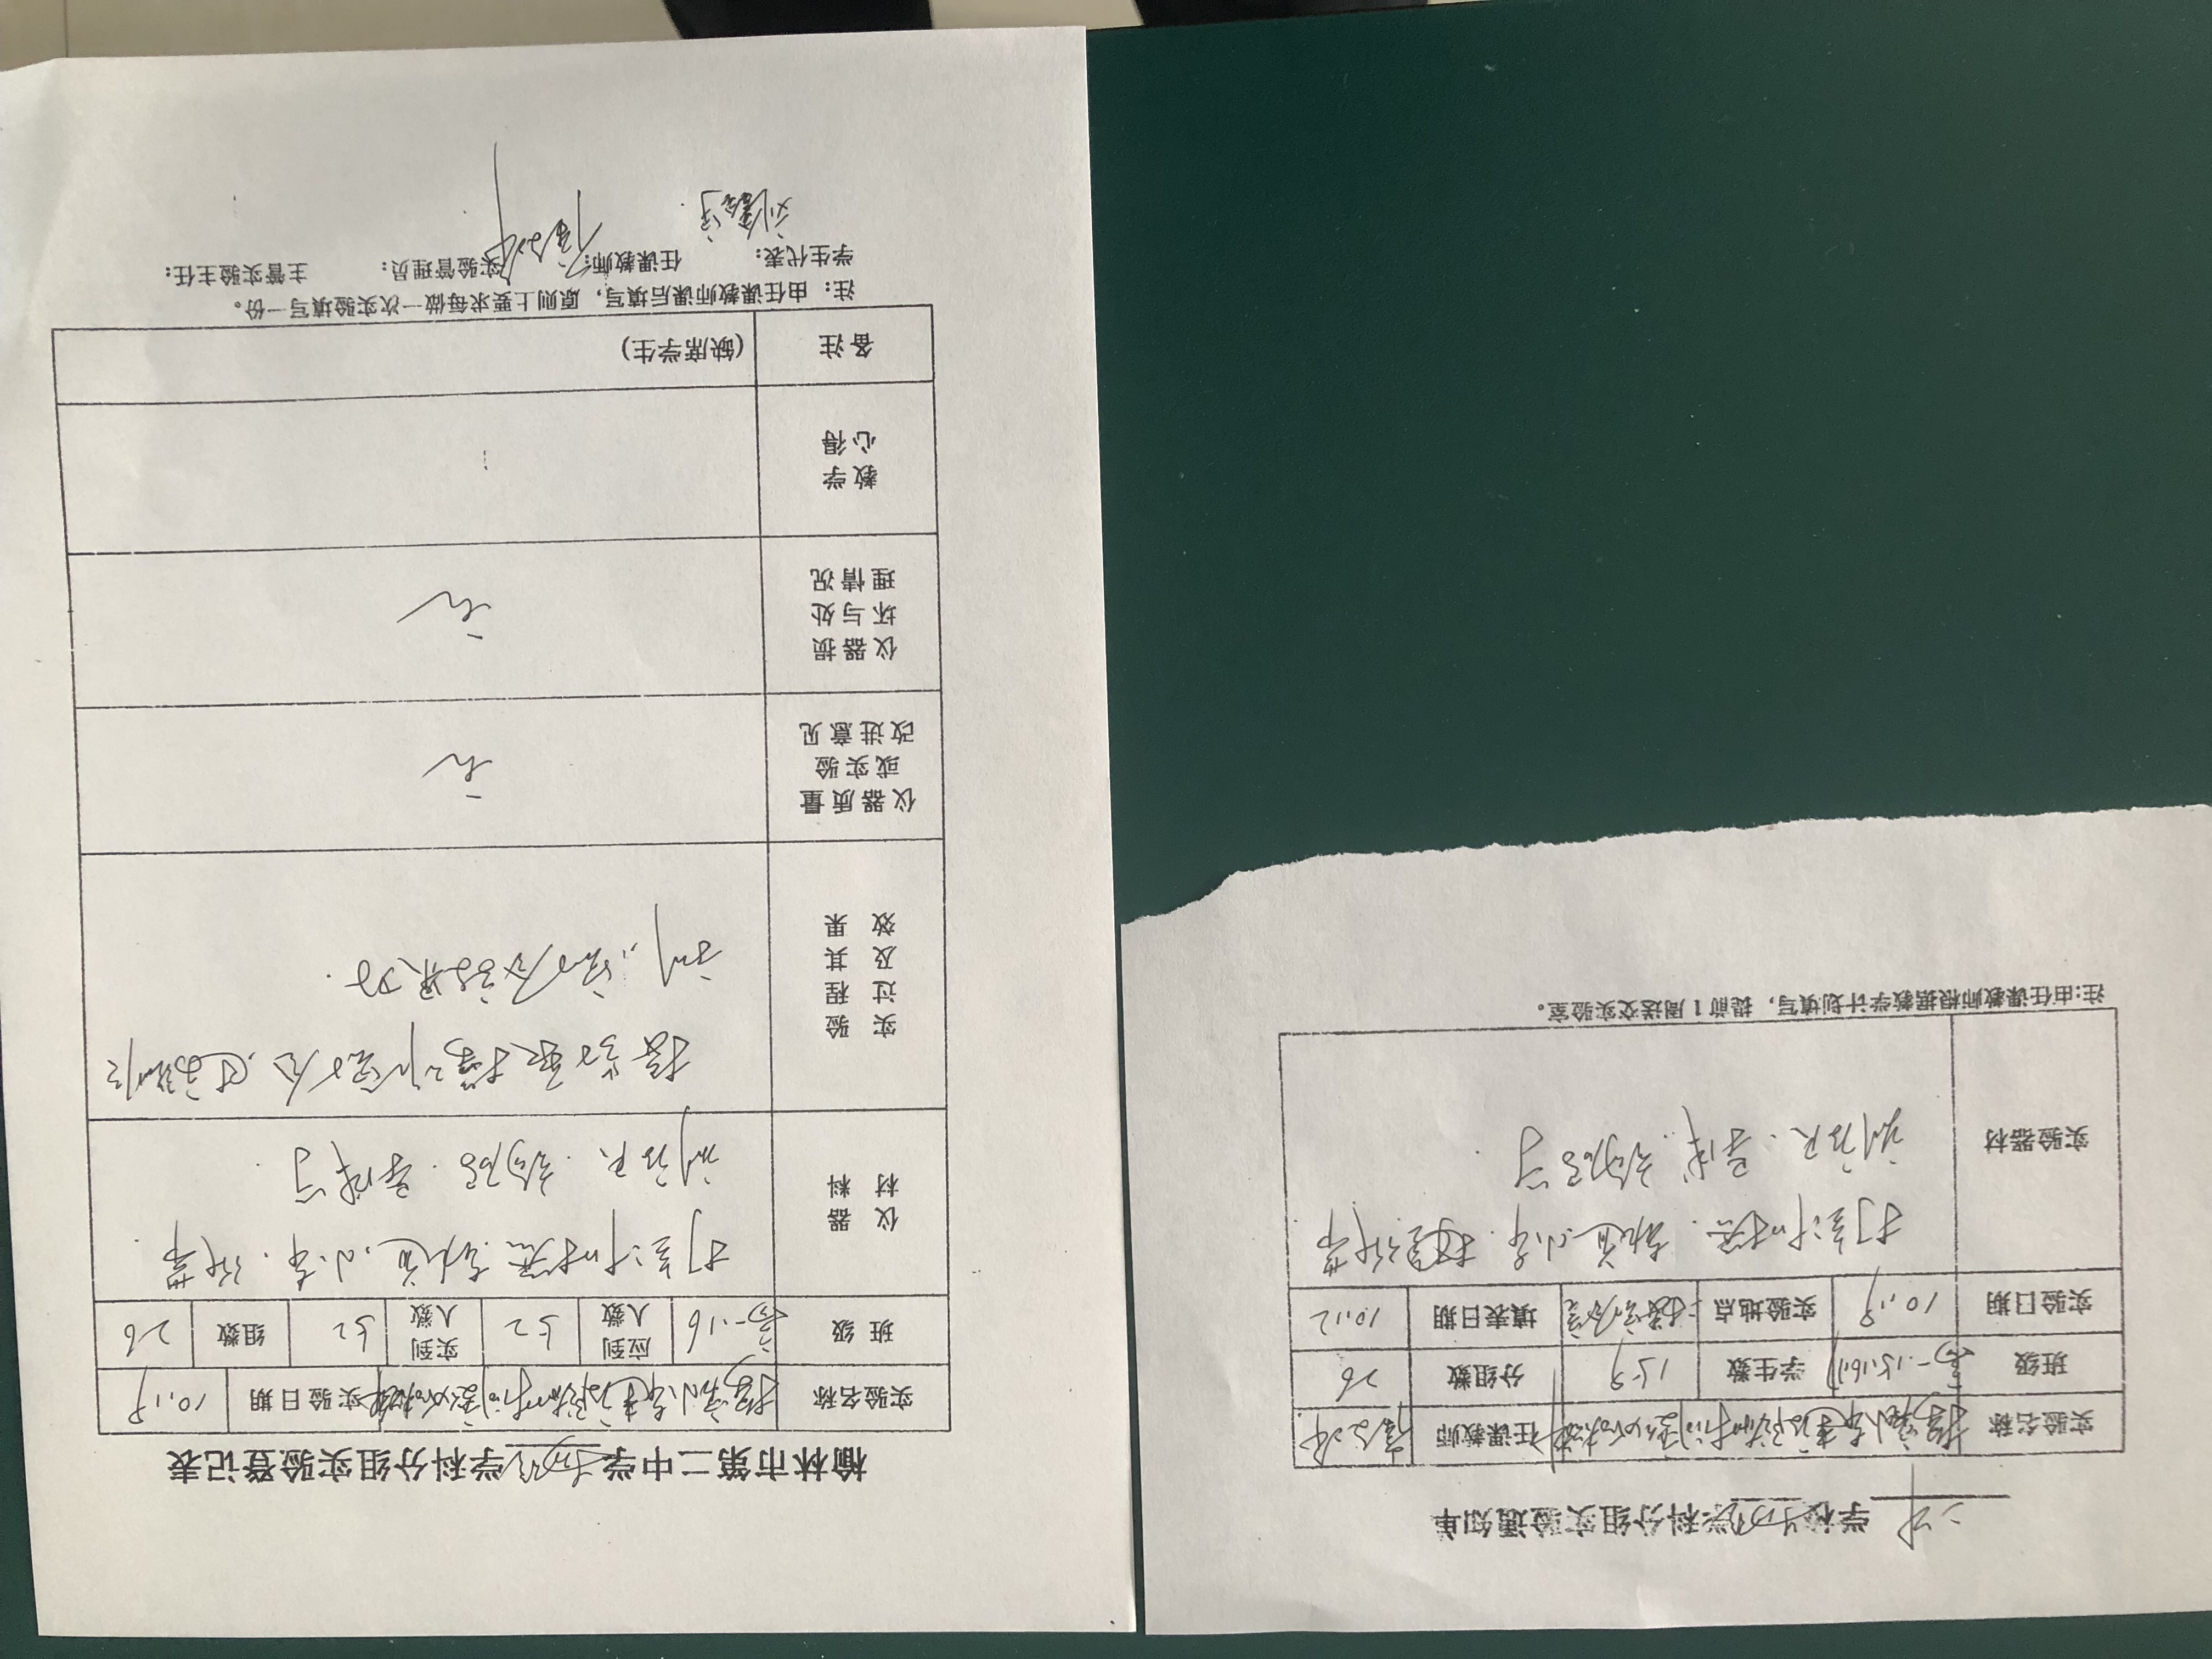 榆林市第二中学物理学科分组实验登记表
实验名称 探究小车速度随时间变化的规律 实验日期 10.19
班级 高一.16 应到人数 52 实到人数 52 组数 26
仪器材料 打点计时器.轨道.小车.纸带
刻度尺.钩码.导线等.
实验过程及其效果
仪器质量或实验改进意见 无
仪器损坏与处理情况 无
教学心得
备注 (缺席学生)
注：由任课教师课后填写，原则上要求每做一次实验填写一份。
学生代表： 任课教师： 实验管理员： 主管实验主任：
二中 学校物理学科分组实验通知单
实验名称 探究小车速度随时间变化的规律 任课教师
班级 高一.15.16.17 学生数 159 分组数 26
实验日期 10.19 实验地点 填表日期 10.12
实验器材 打点计时器.轨道.小车.纸带
刻度尺.导线.钩码等.
注:由任课教师根据教学计划填写，提前1周送交实验室。